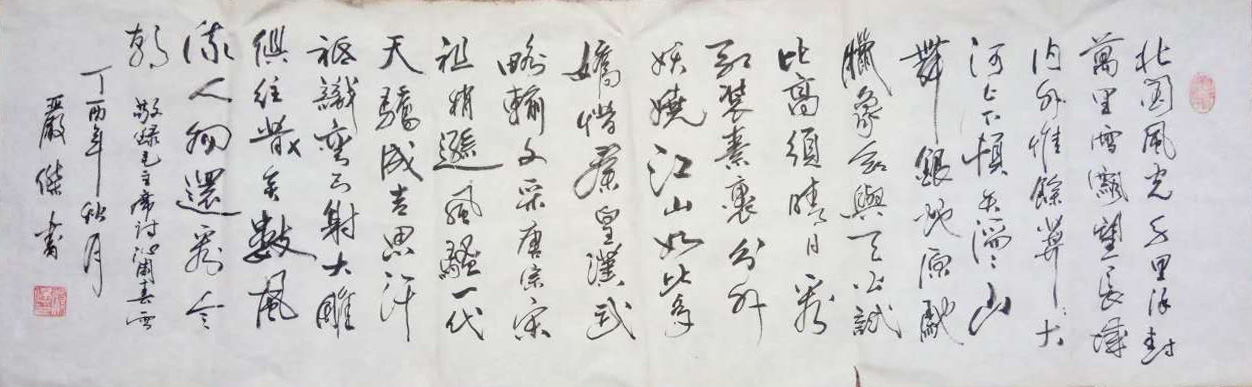 北國風光千里冰封
萬里雪飄望長城
内外惟餘莽〻大
河上下頓失滔〻山
舞銀蛇原馳
臘象欲與天公試
比高須晴日看
紅裝素裹分外
妖嬈江山如此多
嬌惜秦皇漢武
略輸文采唐宗宋
祖稍遜風騷一代
天驕成吉思汗
祗識彎弓射大雕
俱往矣數風
流人物還看今
朝
敬録毛主席詩沁園春雪
丁酉年秋月
嚴傑書